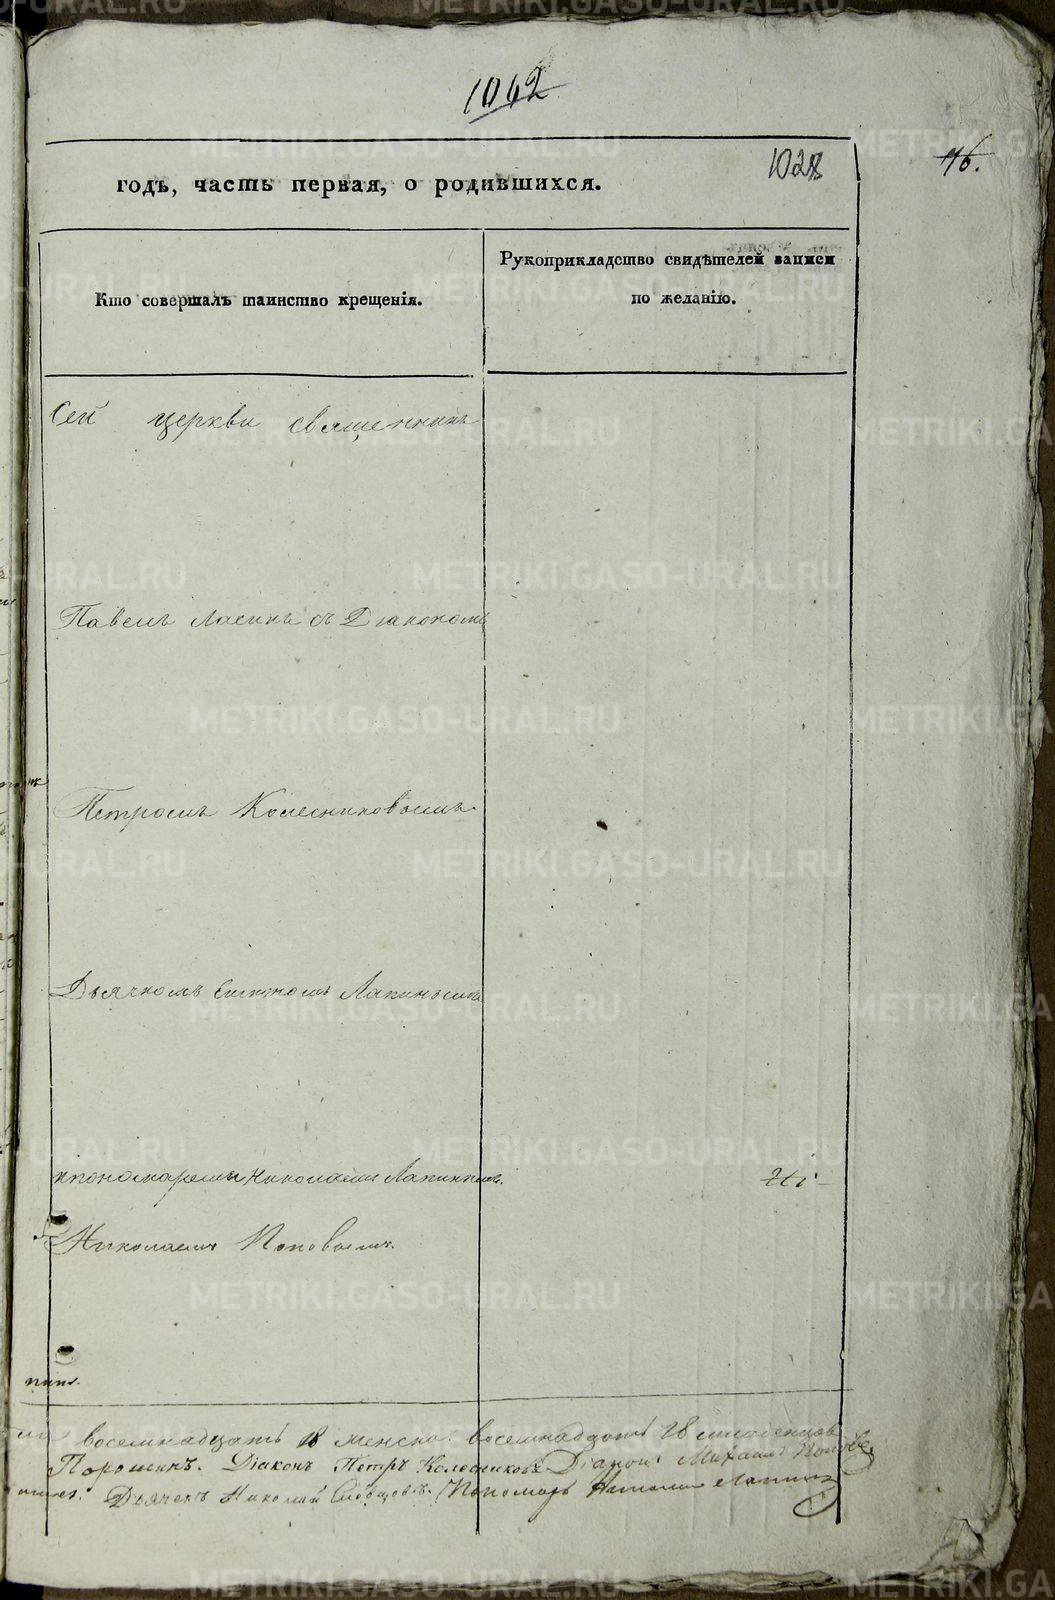 1042
1028
76.
годъ, часть первая, о родившихся.
Кто совершалъ таинство крещенія.
Рукоприкладство свидѣтелей записи
по желанію.
Сей церкви священникъ
Павелъ съ Діакономъ
Петромъ Колесниковымъ
Дьячкомъ Лапинымъ
пономаремъ Николаемъ Лапинымъ.
Николаемъ Поповымъ.
восемнадцать 18 женска восемнадцать младенцовъ
Діаконъ Петръ Колесниковъ Діаконъ Михаилъ Поповъ
Дьячекъ Николай Пономарь Лапинъ
METRIKI.GASO-URAL.RU